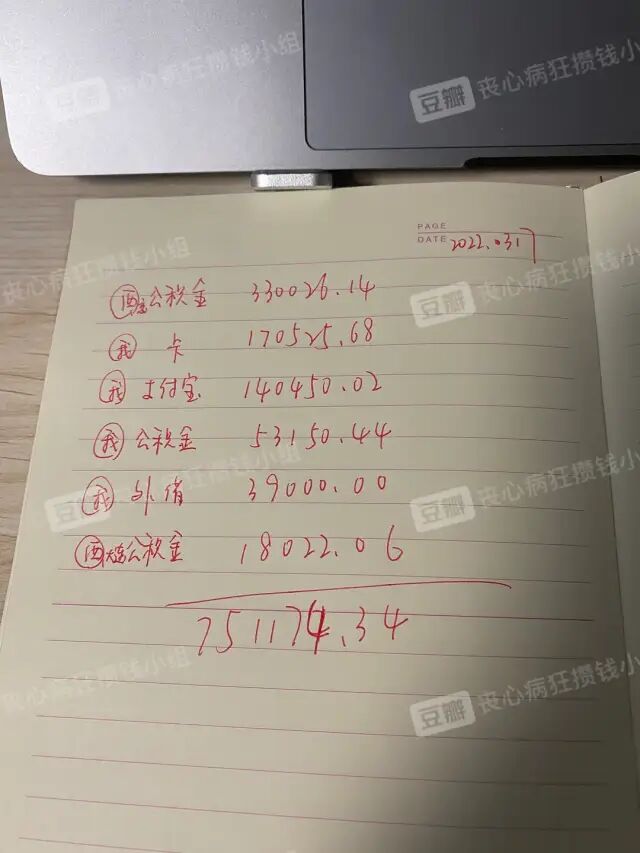 豆瓣 丧心病狂攒钱小组
豆瓣 丧心病狂攒钱小组
PAGE
DATE 2022.0317
公积金 330026.14
我 卡 170525.68
我 支付宝 140450.02
我 公积金 53150.44
我 外债 39000.00
公积金 18022.06
751174.34
丧心病狂攒钱小组
豆瓣 丧心病狂攒钱小组
豆瓣 丧心病狂攒钱小组
豆瓣 丧心病狂攒钱小组
丧心病狂攒钱小组
豆瓣 丧心病狂攒钱小组